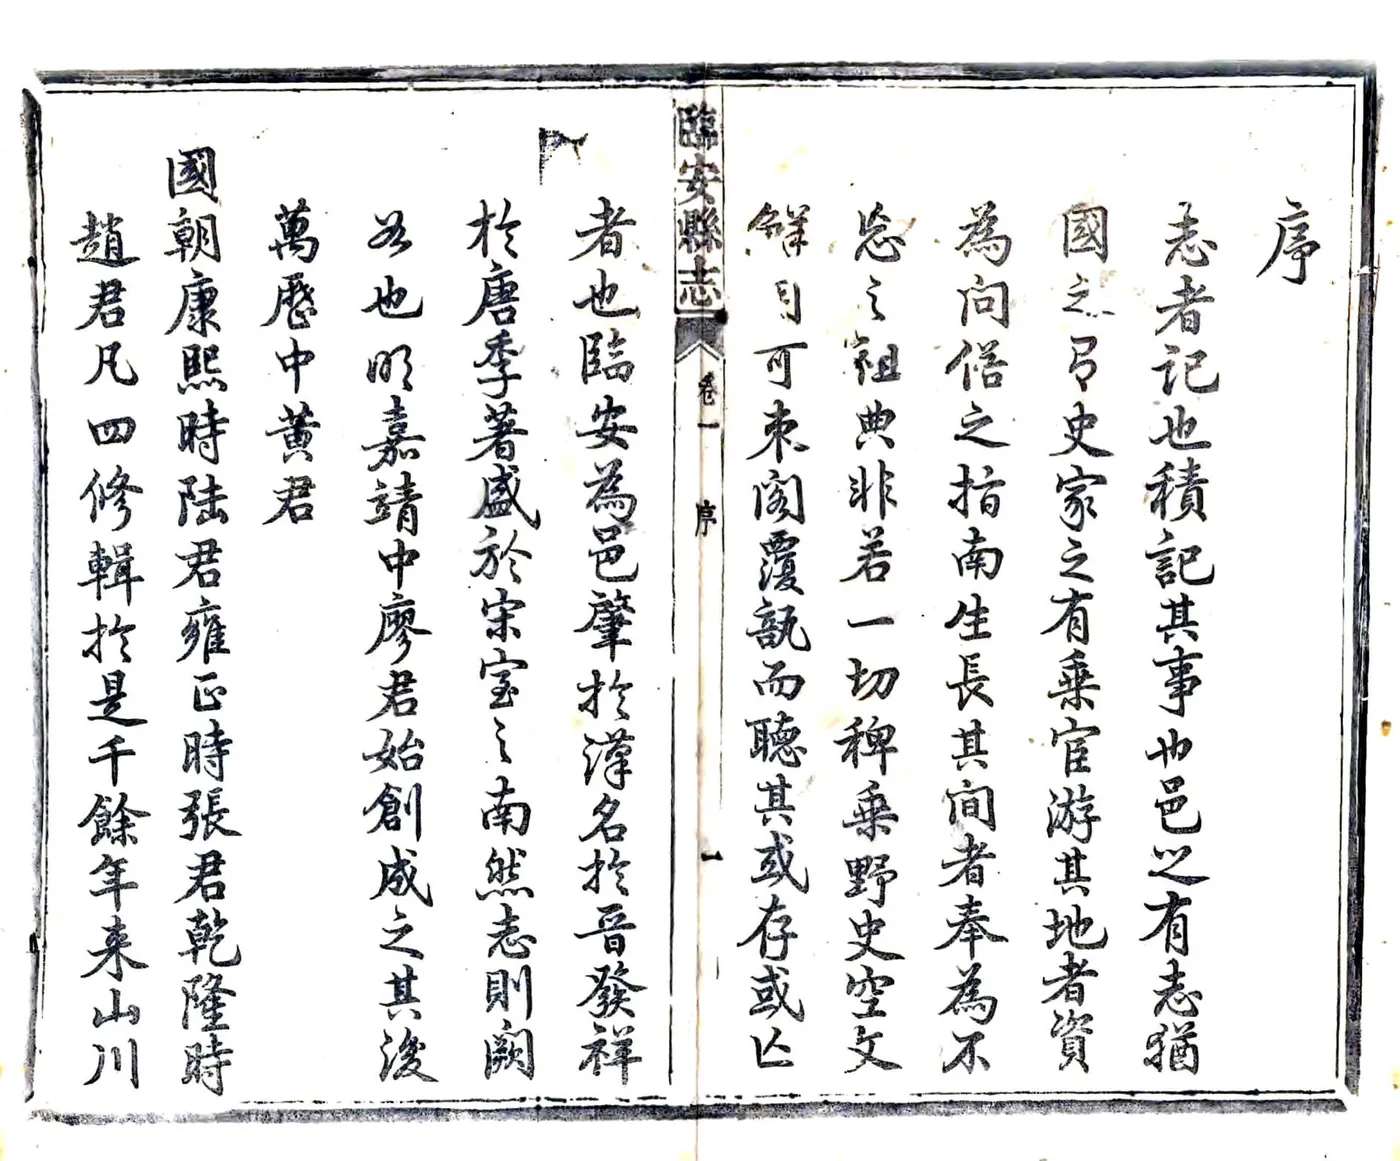 序
志者記也積記其事也邑之有志猶
國之有史家之有乗宦游其地者資
為問俗之指南生長其间者奉為不
忘之祖典非若一切稗乗野史空文
鮮用可束阁覆瓿而聽其或存或亡
臨安縣志
卷一
序
一
者也臨安為邑肇於漢名於晉發祥
於唐季著盛於宋室之南然志則闕
如也明嘉靖中廖君始創成之其後
萬歷中黄君
國朝康熙時陆君雍正時張君乾隆時
趙君凡四修輯於是千餘年来山川